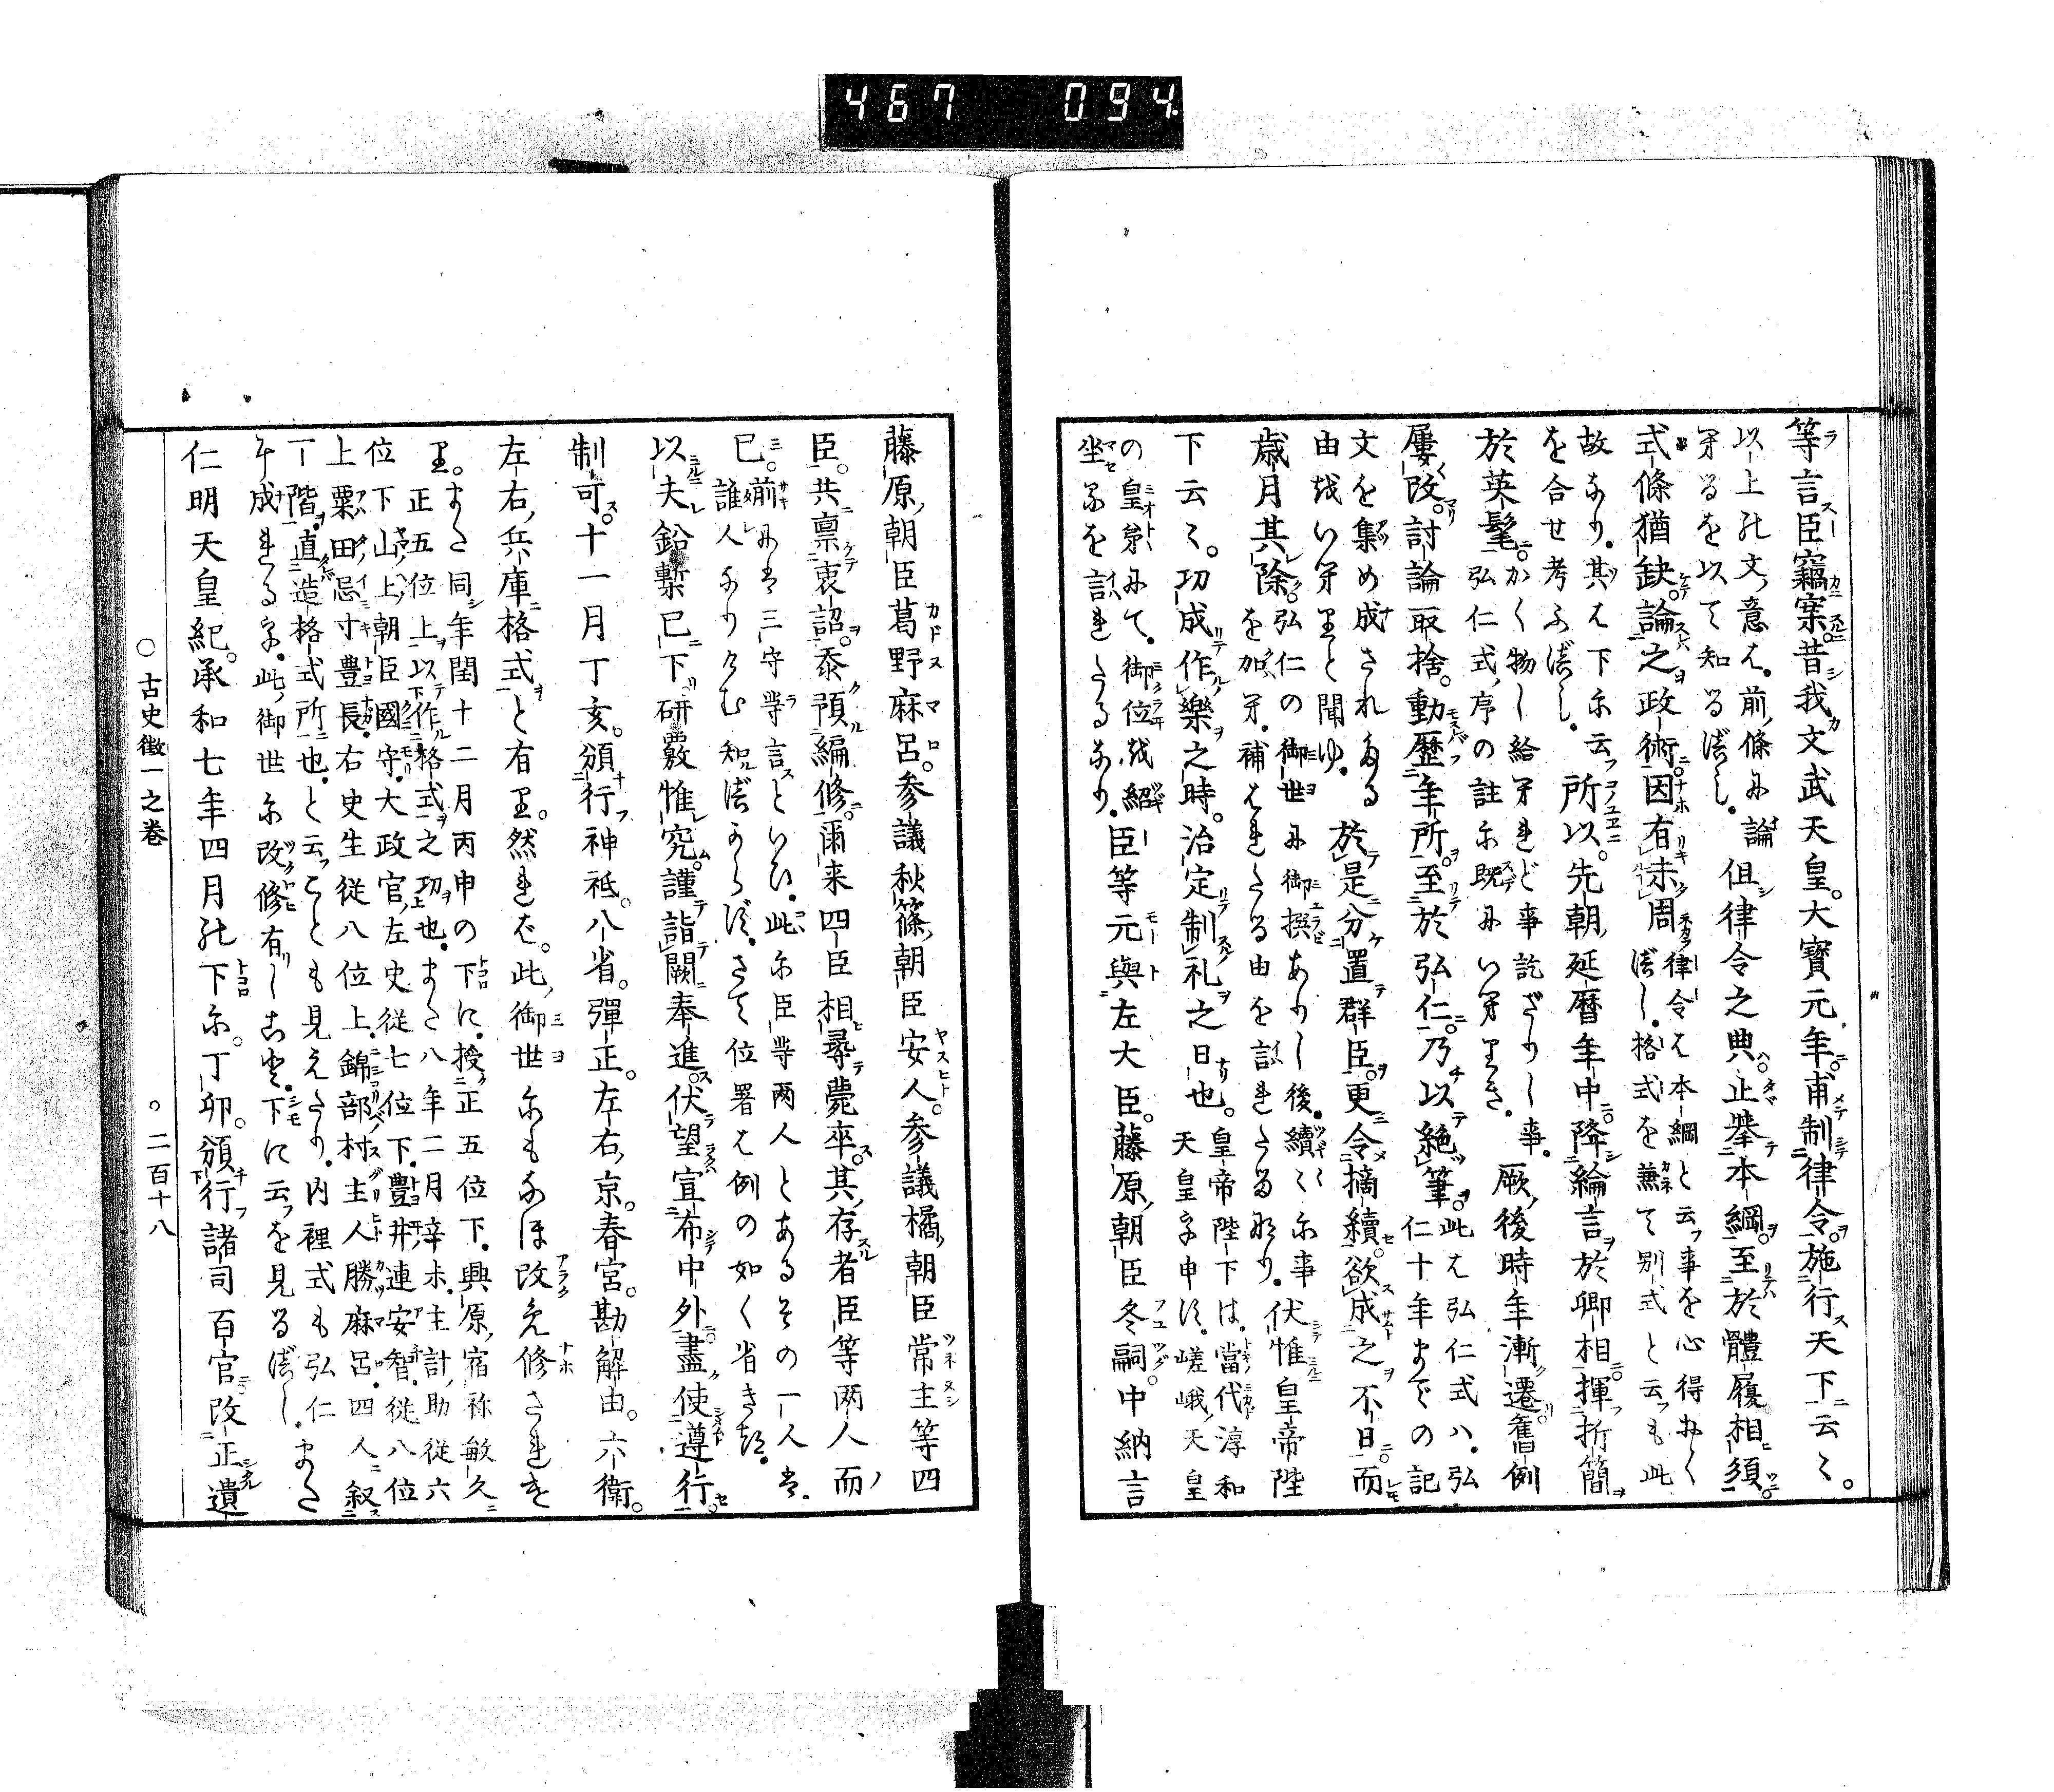 467 094
等言臣竊案。昔我文武天皇。大寶元年。甫制律令。施行天下云々。
以上の文意は。前條に論
るを以て知るべし。但律令之典。止擧本綱。至於體履相須。
式條猶缺。論之政術。因有未周律令は本綱と云事を心得おく
べし。格式を兼て別式と云も此
故なり。其は下に云
を合せ考ふべし。所以。先朝延暦年中。降綸言於卿相。揮折簡
於英髦。かく物し給へれど事訖ざりし事。
弘仁式序の註に既にいへりき。厥後時年漸遷。舊例
屢改。討論取捨。動歷年所。至於弘仁。乃以絶筆。此は弘仁式ハ。弘
仁十年までの記
文を集め成されたる
由をいへりと聞ゆ。於是分置群臣。更令摘續。欲成之不日。而
歳月其除。弘仁の御世に御撰ありし後。續々に事
を加へ。補はれたる由を言れたるなり。伏惟皇帝陛
下云々。功成作樂之時。治定制礼之日也。皇帝陛下は。當代淳和
天皇を申す。嵯峨天皇
の皇弟にて。御位を紹
坐るを言れたるなり。臣等元與左大臣。藤原朝臣冬嗣。中納言
藤原朝臣葛野麻呂。参議秋篠朝臣安人。参議橘朝臣常主等四
臣。共禀衷詔。忝預編修。爾来四臣相尋薨卒。其存者臣等兩人而
已。前には三守等言といひ。此に臣等兩人とあるその一人は。
誰人なりけむ知べからず。さて位署は例の如く省きぬ。
以夫鉛槧已下。研覈惟究。謹詣闕奉進。伏望宣布中外。盡使遵行。
制可。十一月丁亥。頒行神祇。八省。彈正。左右京。春宮。勘解由。六衛。
左右兵庫格式と有り。然れば。此御世にもなほ改免修されき
り。また同年閏十二月丙申の下に。授正五位下。興原宿祢敏久
正五位上。以下作格式之功也。また八年二月辛未。主計助従六
位下山上朝臣國守。大政官左史従七位下。豊井連安智。従八位
上粟田忌寸豊長。右史生従八位上。錦部村主人勝麻呂。四人叙
一階。直造格式所也。と云ことも見えたり。内裡式も弘仁
年成れる を。此御世に改修有しこと。下に云を見るべし。また
仁明天皇紀。承和七年四月の下に。丁卯。頒行諸司百官改正遺
○古史徴一之巻
○二百十八